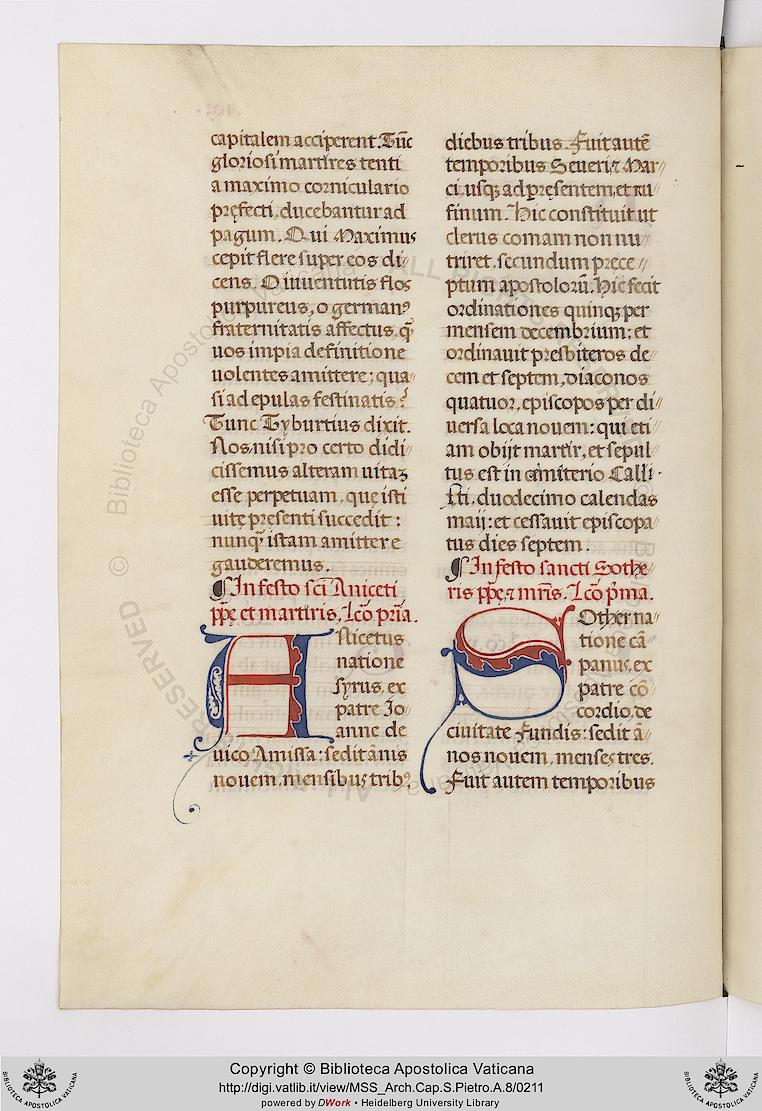 capitalem acciperent. Tūc
gloriosi martires tenti
a maximo corniculario
pręfecti, ducebantur ad
pagum. Qui Maximus
cepit flere super eos di//
cens. O iuuentutis flos
purpureus, o germanꝰ
fraternitatis affectus, q̄
uos impia definitione
uolentes amittere; qua//
si ad epulas festinatis?
Tunc Tyburtius dixit.
Nos nisi pro certo didi//
cissemus alteram uitaʒ
esse perpetuam, que isti
uitę presenti succedit:
nunq̄ istam amittere
gauderemus.
¶ In festo sc̄i Aniceti
pp̄ę et martiris, Lc̄o pr̄ia.
ANicetus
natione
syrus, ex
patre Io//
anne de
uico Amissa: sedit ānis
nouem, mensibus tribꝰ,
diebus tribus. Fuit autē
temporibus Seueri, ⁊ Mar//
ci, usqꝫ ad pręsentem, et ru//
finum. Hic constituit ut
clerus comam non nu//
triret, secundum prece//
ptum apostolorū. Hic fecit
ordinationes quinqꝫ per
mensem decembrium; et
ordinauit presbiteros de//
cem et septem, diaconos
quatuor, episcopos per di//
uersa loca nouem: qui eti//
am obijt martir, et sepul//
tus est in cimiterio Calli//
sti, duodecimo calendas
maij: et cessauit episcopa//
tus dies septem.
¶ In festo sancti Sothe//
ris pp̄ę, ⁊ mr̄is. Lc̄o p̄ma.
SOther na//
tione cā//
panus, ex
patre cō//
cordio, de
ciuitate Fundis: sedit ā//
nos nouem, menses tres.
Fuit autem temporibus
© Biblioteca Apostolica Vaticana ALL RIGHTS RESERVED
Copyright © Biblioteca Apostolica Vaticana
http://digi.vatlib.it/view/MSS_Arch.Cap.S.Pietro.A.8/0211
powered by DWork • Heidelberg University Library
BIBLIOTECA APOSTOLICA VATICANA
BIBLIOTECA APOSTOLICA VATICANA